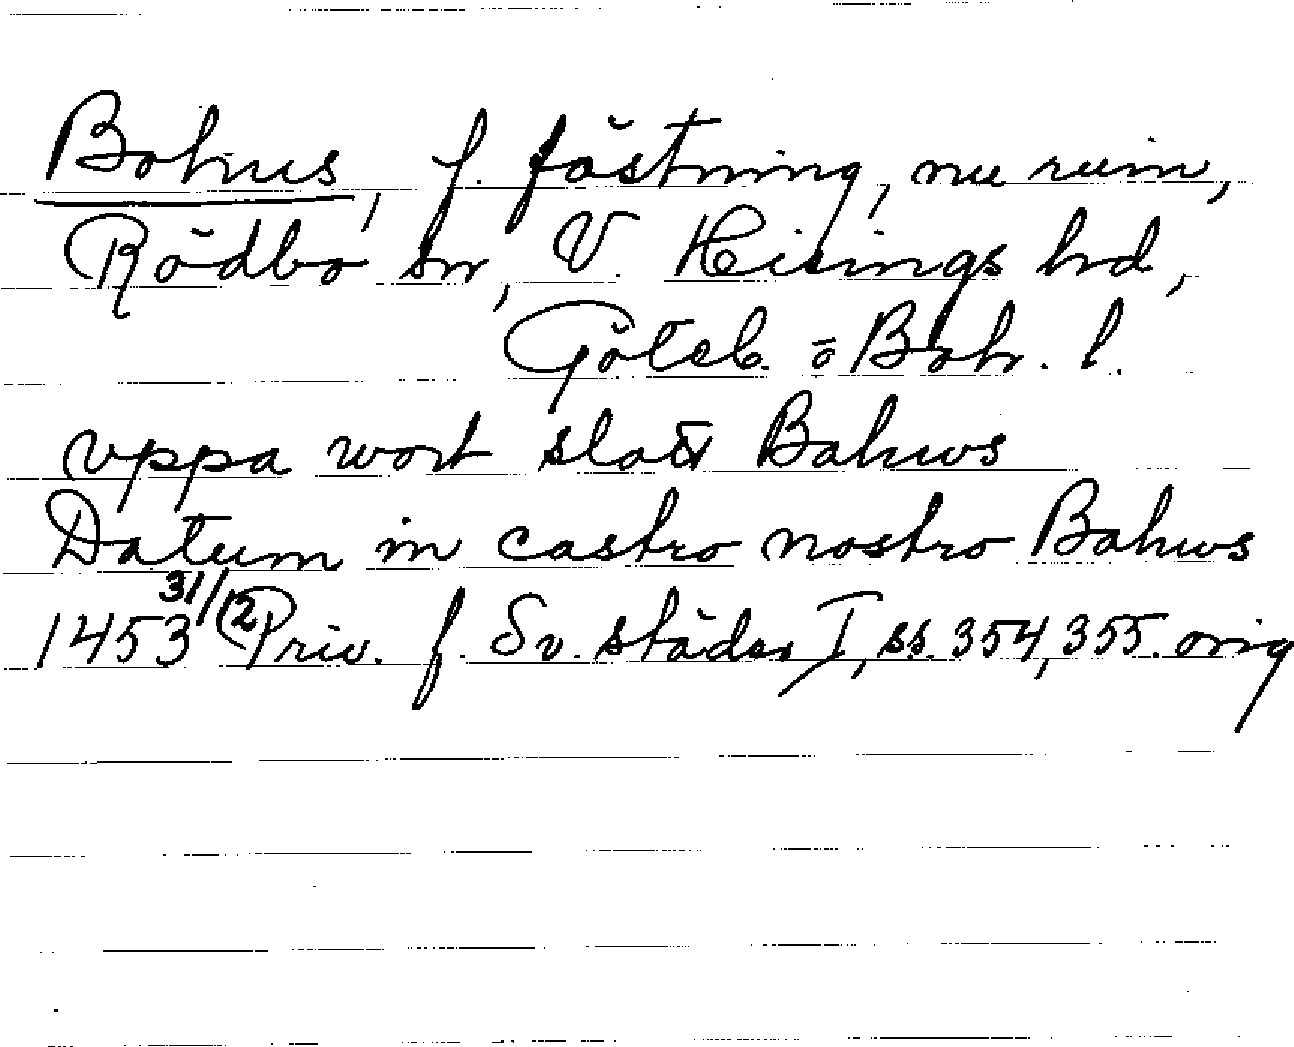 Bohus, f. fästning, nu ruin,
Rödbo sn, V. Hisings hd,
Göteb. o Boh. l.
vppa wort slott Bahws
Datum in castro nostro Bahws
1453 31/12 Priv. f. Sv. städer I, ss. 354, 355. orig